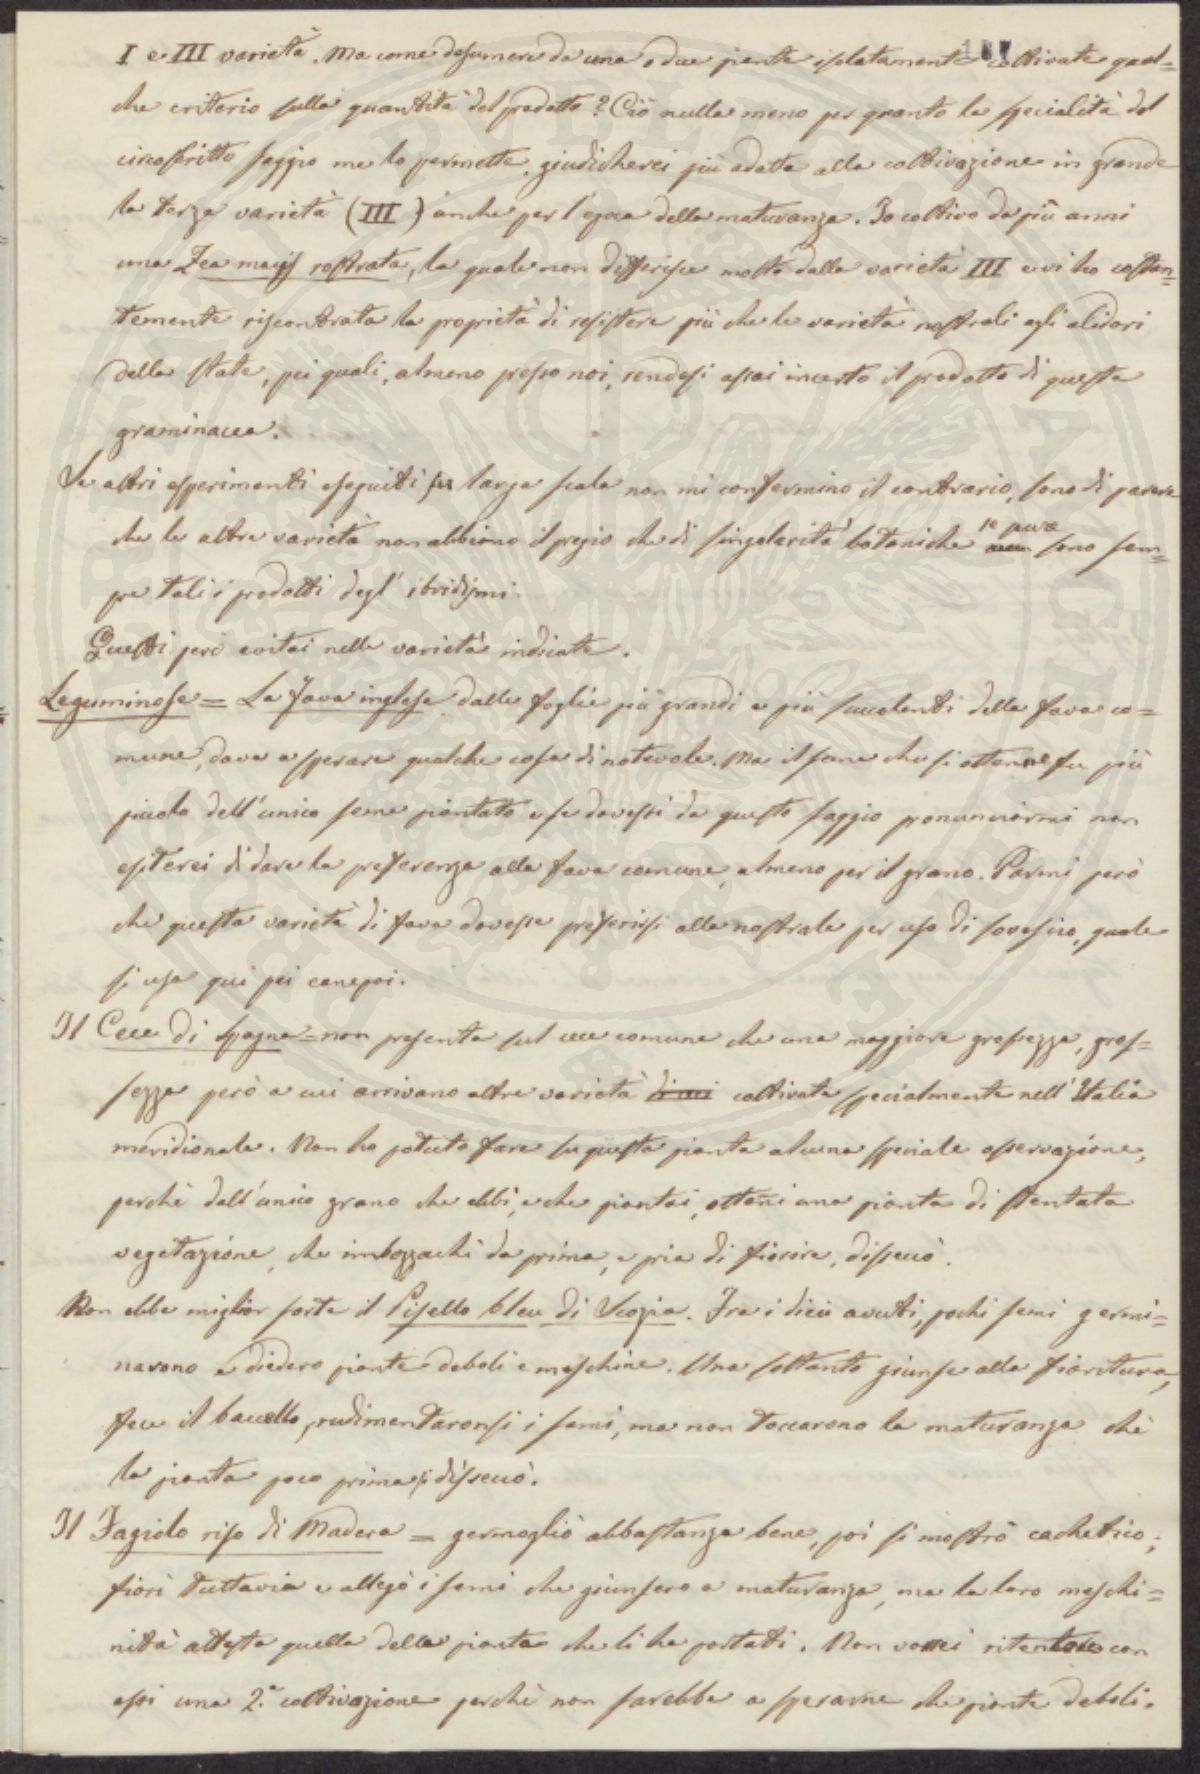 187
I e III varietà. Ma come desumere da una o due piante isolatamente coltivate qual=
che criterio sulla quantità del prodotto? Ciò nulla meno per quanto la specialità del
circoscritto saggio me lo permette, giudicherei più adatta alla coltivazione in grande
la terza varietà (III) anche per l'epoca della maturanza. Io coltivo da più anni
una Zea mays rostrata, la quale non differisce molto dalla varietà III e vi ho costan=
temente riscontrata la proprietà di resistere più che le varietà nostrali agli alidori
della state, pei quali, almeno presso noi, rendesi assai incerto il prodotto di questa
graminacea.
Se altri esperimenti eseguiti su larga scala non mi confermino il contrario, sono di parere
che le altre varietà non abbiano il pregio che di singolarità botaniche se pure sono sem=
pre tali i prodotti degl' ibridismi.
Questi però evitai nelle varietà indicate.
Leguminose = La fava inglese dalle foglie più grandi e più succulenti della fava co=
mune, dava a sperare qualche cosa di notevole. Ma il seme che si ottenne fu più
piccolo dell'unico seme piantato e se dovessi da questo saggio pronunciarmi non
esiterei di dare la preferenza alla fava comune, almeno per il grano. Parmi però
che questa varietà di fava dovesse preferirsi alla nostrale per uso di sovescio, quale
si usa qui pei canepai.
Il Cece di Spagna = non presenta sul cece comune che una maggiore grossezza, gros=
sezza però a cui arrivano altre varietà di ceci coltivate specialmente nell'Italia
meridionale. Non ho potuto fare su questa pianta alcuna speciale osservazione,
perchè dall'unico grano che ebbi, e che piantai, ottenni una pianta di stentata
vegetazione, che imbozzachì da prima, e pria di fiorire, disseccò.
Non ebbe miglior sorte il Pisello bleu di Scozia. Fra i dieci avuti, pochi semi germi=
narono e diedero piante deboli e meschine. Una soltanto giunse alla fioritura,
fece il baccello, rudimentaronsi i semi, ma non toccarono la maturanza chè
la pianta poco prima si disseccò.
Il Fagiolo riso di Madera = germogliò abbastanza bene, poi si mostrò cachetico;
fiorì tuttavia e allegò i semi che giunsero a maturanza, ma la loro meschi=
nità attesta quella della pianta che li ha portati. Non vorrei ritentare con
essi una 2.ª coltivazione perchè non sarebbe a sperarne che piante deboli.